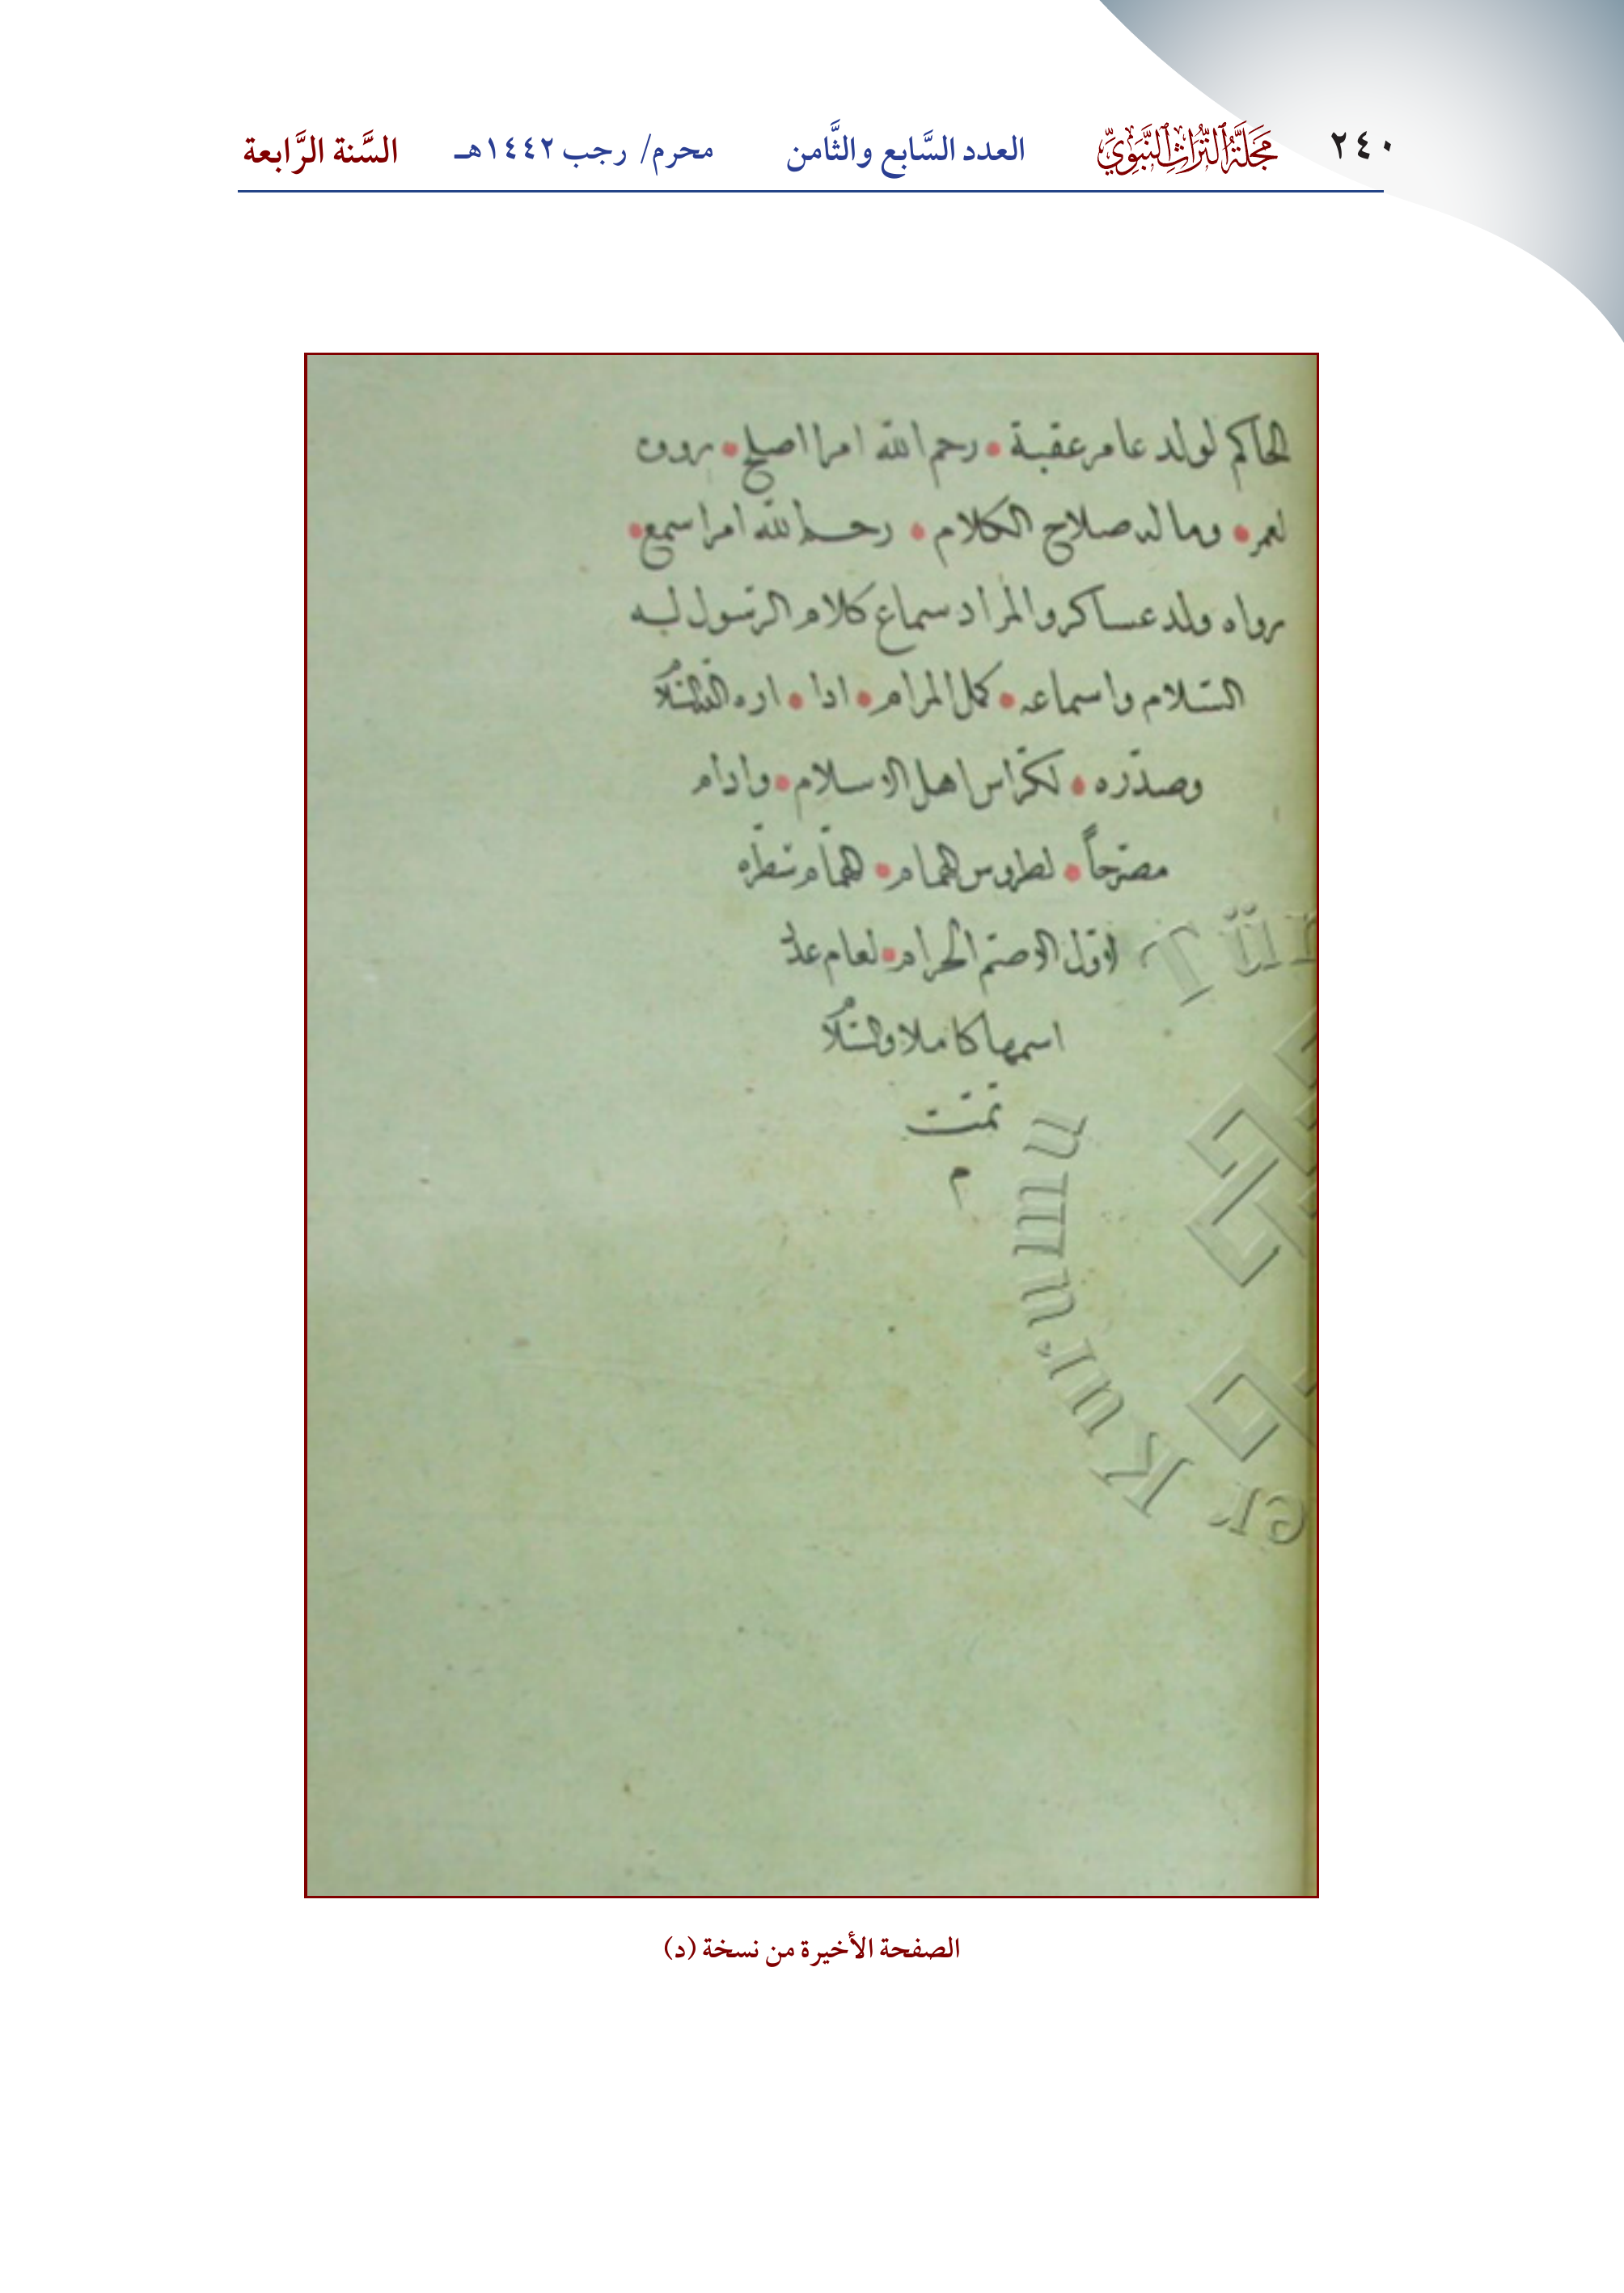 ٢٤٠ مَجَلَّةُ التُّرَاثِ النَّبَوِيِّ العدد السَّابع والثَّامن محرم/ رجب ١٤٤٢هـ السَّنة الرَّابعة
الحاكم لولد عامر عقبة • رحم الله امرا اصلح •
لعمر • وما له صلاح الكلام • رحم الله امرا سمع •
رواه ولد عساكر والمراد سماع كلام الرسول
السّلام واسماعه • كمل المرام • ادا •
وصدّره • لكرّاس اهل الاسلام • وادام
مصرّحاً • لطروس همام • همّام سطّره
اوّل الاصمّ الحرام • لعام
اسمها كاملا والسّلام
تمّت
م
الصفحة الأخيرة من نسخة (د)